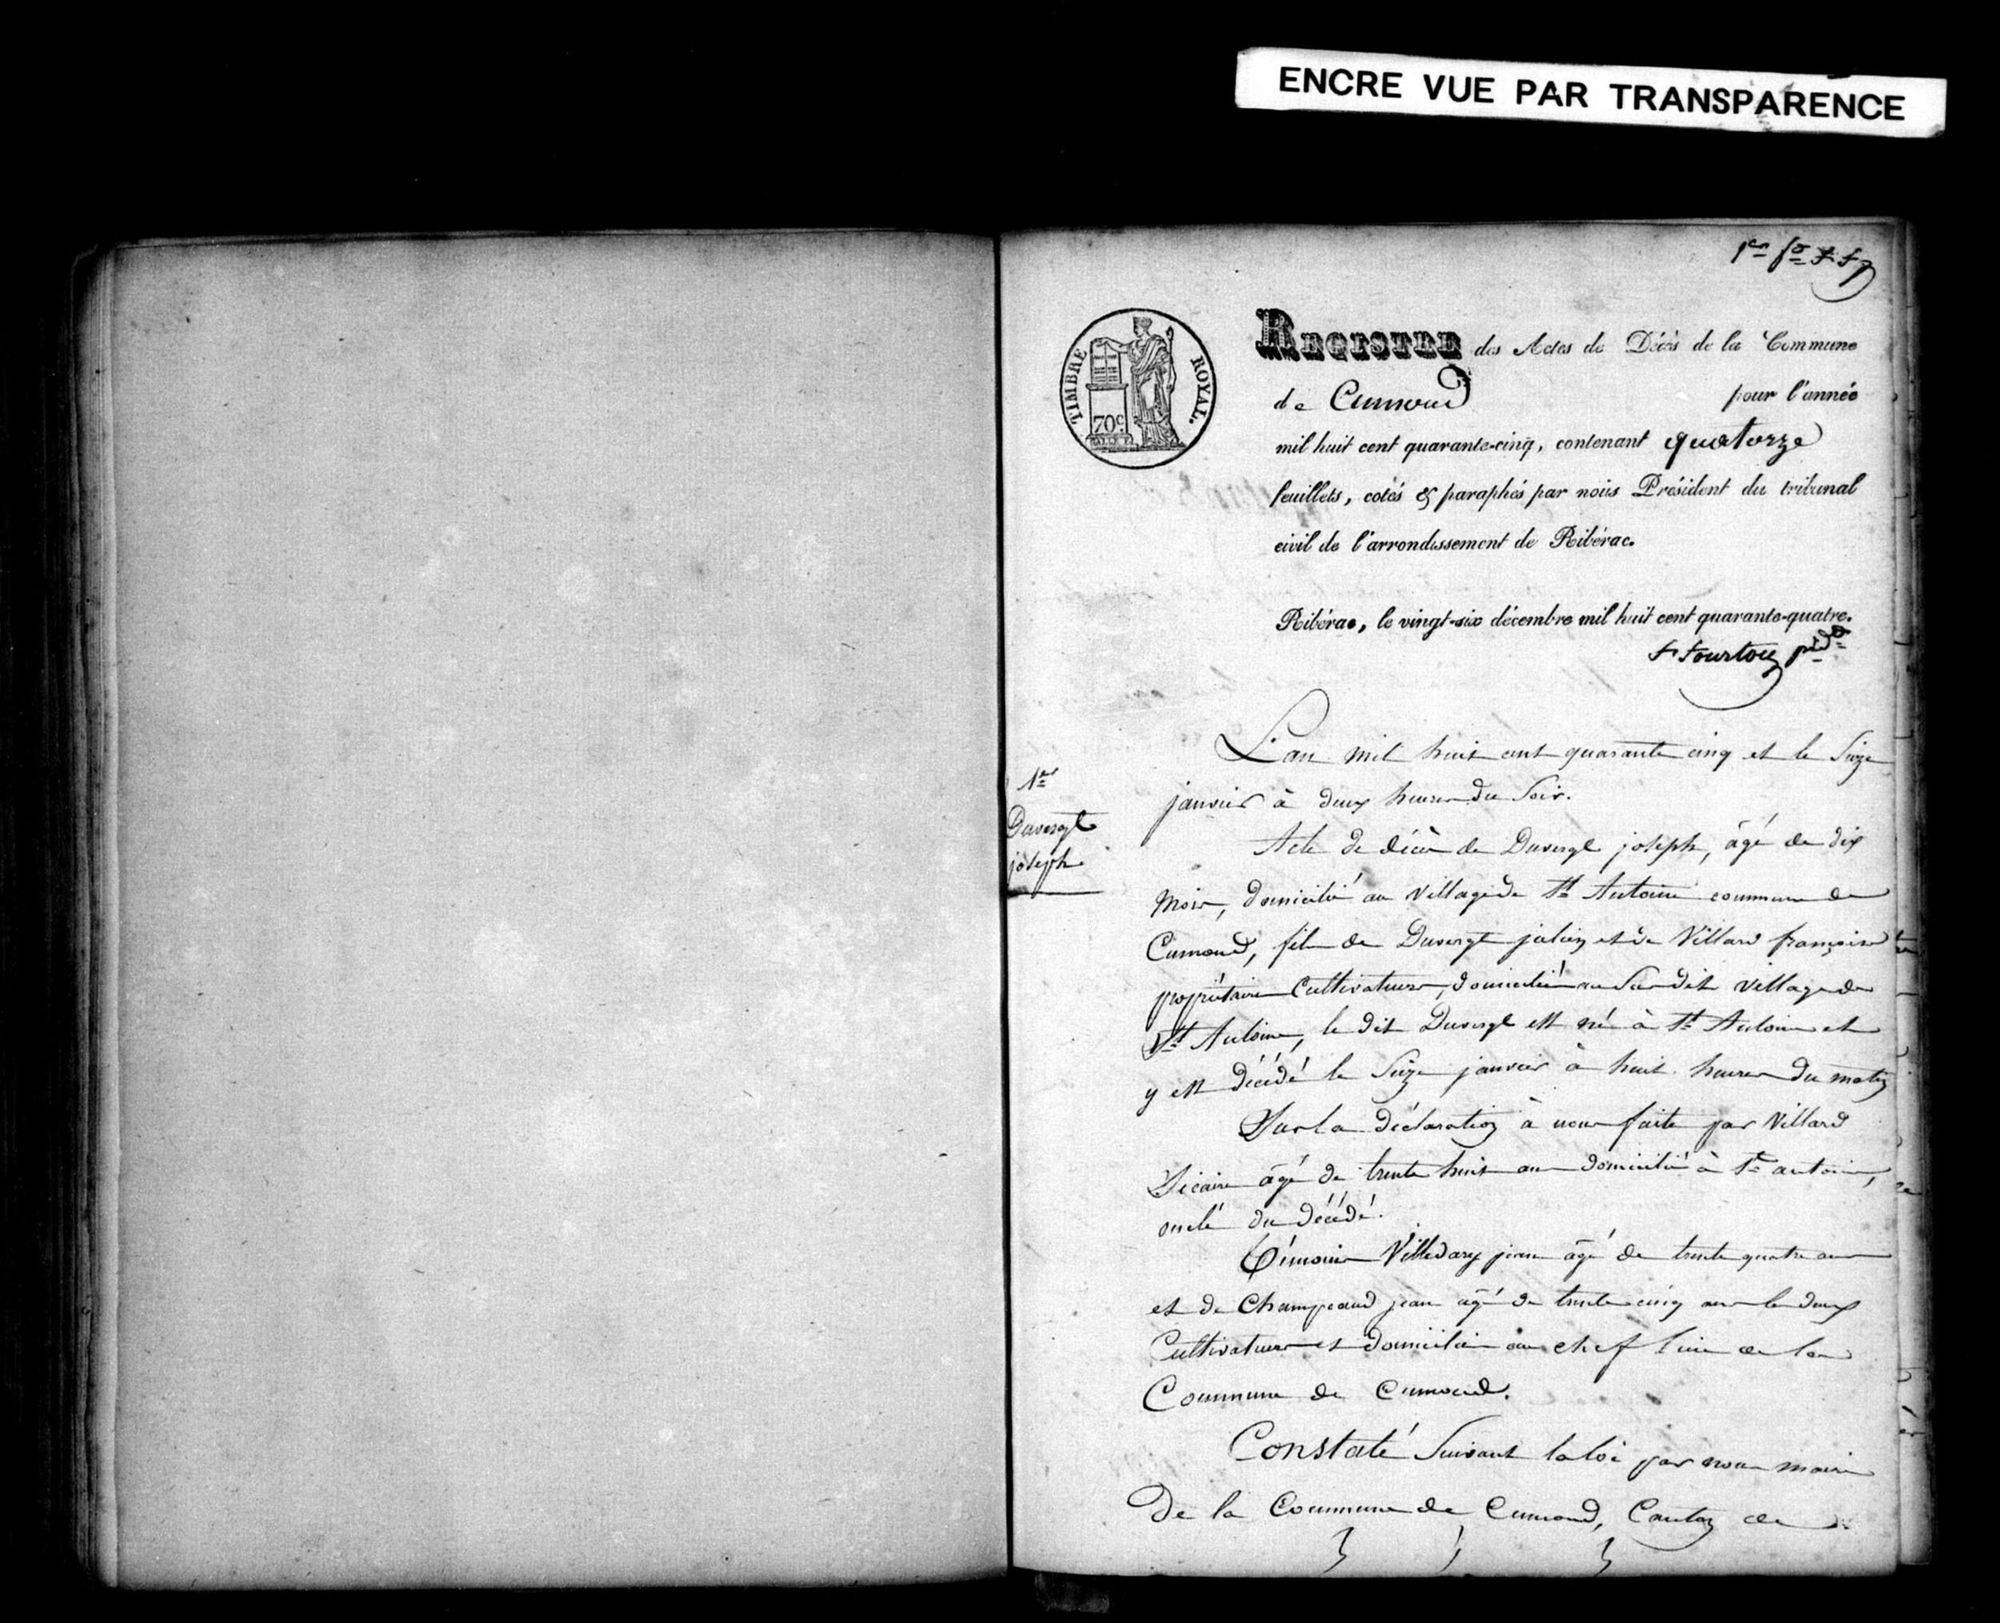 ENCRE VUE PAR TRANSPARENCE
1er fo
TIMBRE ROYAL.
70c.
REGISTRE des Actes de Décès de la Commune
de Cumond pour l'année
mil huit cent quarante-cinq, contenant quatorze
feuillets, cotés & paraphés par nous Président du tribunal
civil de l'arrondissement de Ribérac.
Ribérac, le vingt-six décembre mil huit cent quarante-quatre.
Fourtou pdt
1er
Duvergt
joseph
L'an mil huit cent quarante cinq et le Seize
janvier à deux heures du Soir.
Acte de décès de Duvergt joseph, âgé de dix
Mois, domicilié au village de St Antoine commune de
Cumond, fils de Duvergt julien et de Villard françoise
propriétaires Cultivateurs, domiciliés au Susdit village de
St Antoine, le dit Duvergt est né à St Antoine et
y est décédé le Seize janvier à huit heures du matin
Sur la déclaration à nous faite par Villard
Sicaire âgé de trente huit ans domicilié à St antoine,
oncle du décédé.
Témoins Villedary jean âgé de trente quatre ans
et de Champeaud jean âgé de trente cinq ans les deux
Cultivateurs et domiciliés au chef lieu de la
Commune de Cumond.
Constaté Suivant la loi par nous maire
De la Commune de Cumond, Canton de